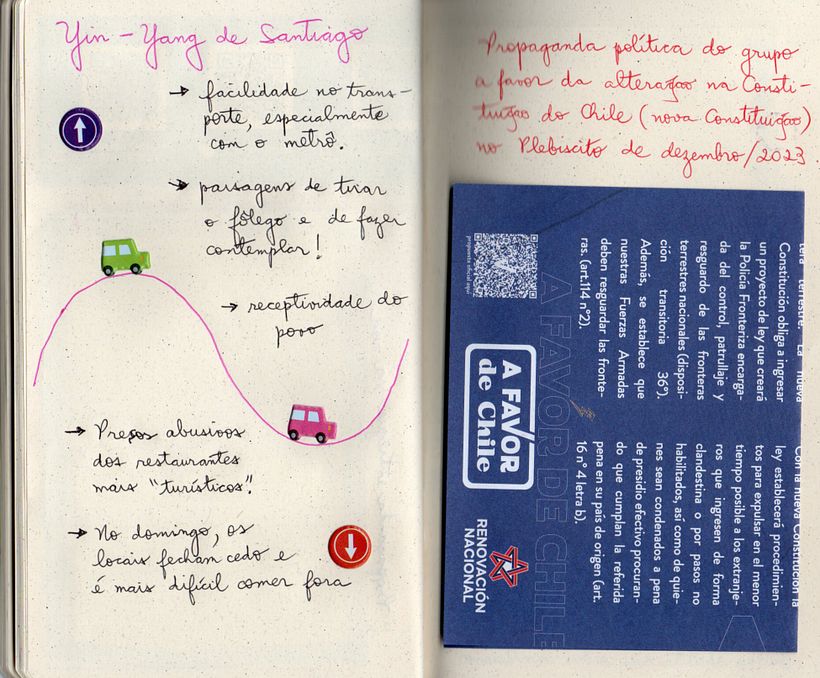 Yin - Yang de Santiago
→ facilidade no trans-
porte, especialmente
com o metrô.
→ paisagens de tirar
o fôlego e de fazer
contemplar!
→ receptividade do
povo
→ Preços abusivos
dos restaurantes
mais "turísticos".
→ No domingo, os
locais fecham cedo e
é mais difícil comer fora
Propaganda política do grupo
a favor da alteração na Consti-
tuição do Chile (nova Constituição)
no Plebiscito de dezembro/2023.
tera terrestre. La nueva
Constitución obliga a ingresar
un proyecto de ley que creará
la Policía Fronteriza encarga-
da del control, patrullaje y
resguardo de las fronteras
terrestres nacionales (disposi-
ción transitoria 36°).
Además, se establece que
nuestras Fuerzas Armadas
deben resguardar las fronte-
ras. (art.114 n°2).
Con la nueva Constitución la
ley establecerá procedimien-
tos para expulsar en el menor
tiempo posible a los extranje-
ros que ingresen de forma
clandestina o por pasos no
habilitados, así como de quie-
nes sean condenados a pena
de presidio efectivo procuran-
do que cumplan la referida
pena en su país de origen (art.
16 n° 4 letra b).
A FAVOR DE CHILE
A FAVOR
de Chile
RENOVACIÓN
NACIONAL
propuesta oficial aquí